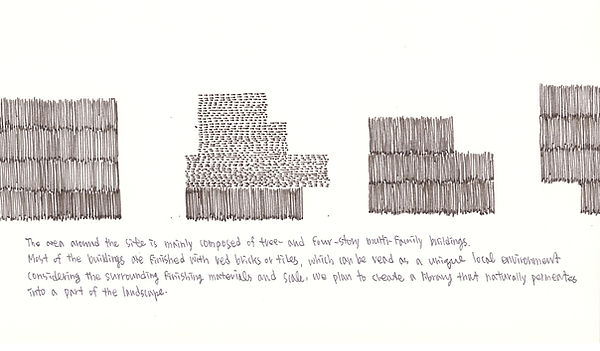 The area around the site is mainly composed of tree- and four-story multi-family buildings.
Most of the buildings are finished with red bricks or tiles, which can be read as a unique local environment
considering the surrounding finishing materials and scale. We plan to create a library that naturally permeates
into a part of the landscape.